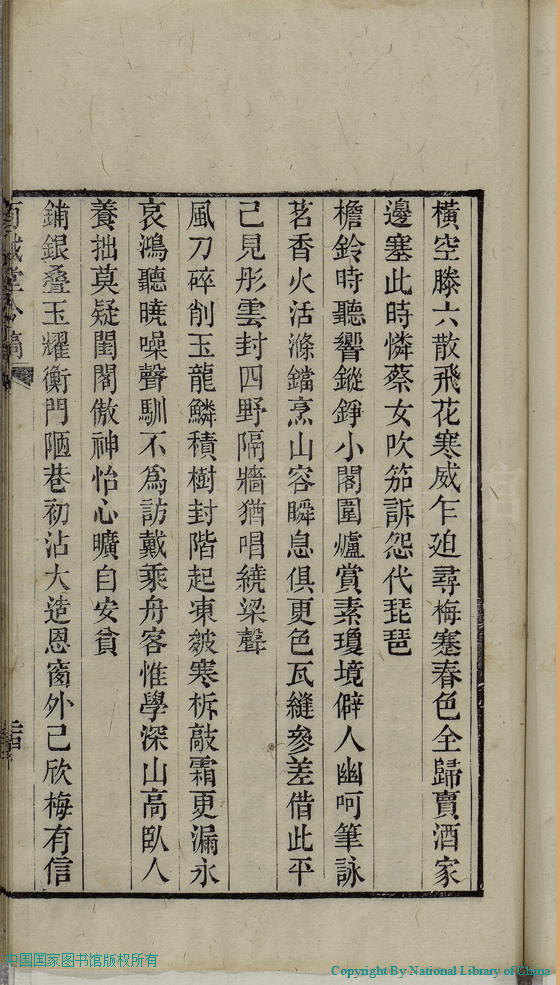 橫空滕六散飛花寒威乍廹尋梅蹇春色全歸賣酒家
邊塞此時憐蔡女吹笳訴怨代琵琶
檐鈴時聽響鏦錚小閣圍爐賞素瓊境僻人幽呵筆詠
茗香火活滌鐺烹山容瞬息俱更色瓦縫參差借此平
己見彤雲封四野隔牆猶唱繞梁聲
風刀碎削玉龍鱗積樹封階起凍皴寒柝敲霜更漏永
哀鴻聽曉噪聲馴不爲訪戴乘舟客惟學深山高臥人
養拙莫疑閨閣傲神怡心曠自安貧
鋪銀叠玉耀衡門陋巷初沾大造恩窗外己欣梅有信
堂吟稿
二十四
中国国家图书馆版权所有
Copyright By National Library of China